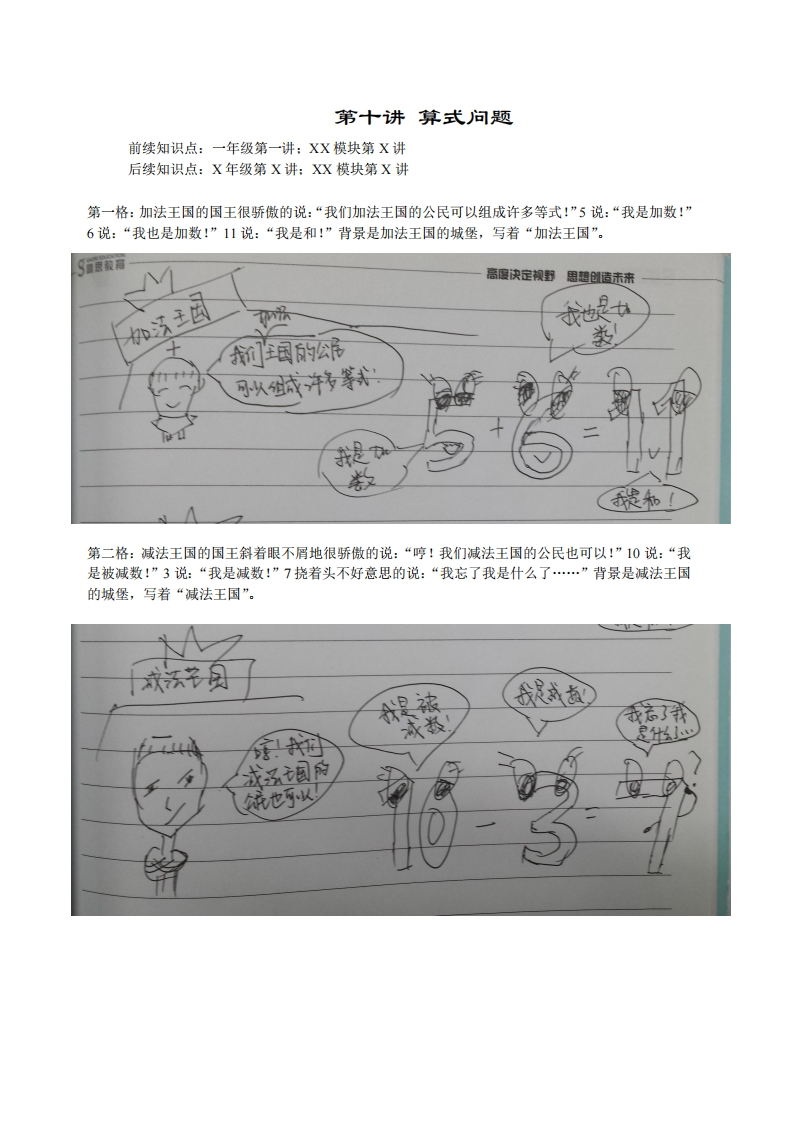 第十讲 算式问题
前续知识点：一年级第一讲；XX 模块第 X 讲
后续知识点：X 年级第 X 讲；XX 模块第 X 讲
第一格：加法王国的国王很骄傲的说：“我们加法王国的公民可以组成许多等式！”5 说：“我是加数！”
6 说：“我也是加数！”11 说：“我是和！”背景是加法王国的城堡，写着“加法王国”。
高度决定视野 思想创造未来
加法王国
+
加法
我们王国的公民
可以组成许多等式！
我也是加
数！
我是加
数
5 + 6 = 11
我是和！
第二格：减法王国的国王斜着眼不屑地很骄傲的说：“哼！我们减法王国的公民也可以！”10 说：“我
是被减数！”3 说：“我是减数！”7 挠着头不好意思的说：“我忘了我是什么了……”背景是减法王国
的城堡，写着“减法王国”。
减法王国
哼！我们
减法王国的
也可以！
我是被
减数！
我是减数！
我忘了我
是什么了…
10 - 3 = 7
?